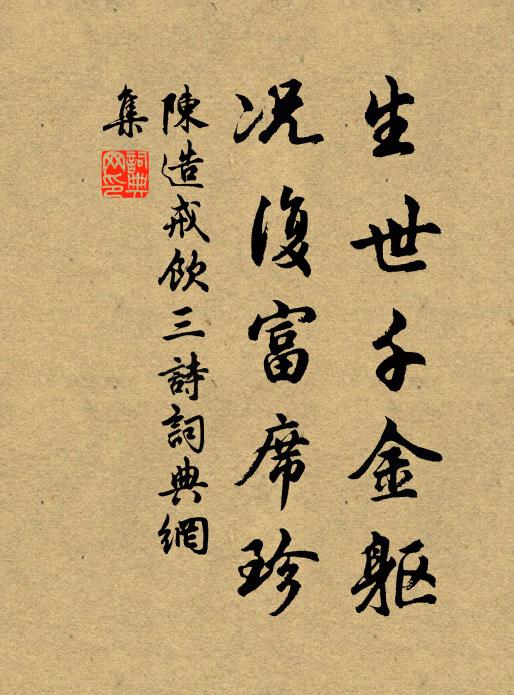 生世千金躯
况復富席珍
陳造戒飲三詩詞典網
集
詞典网印